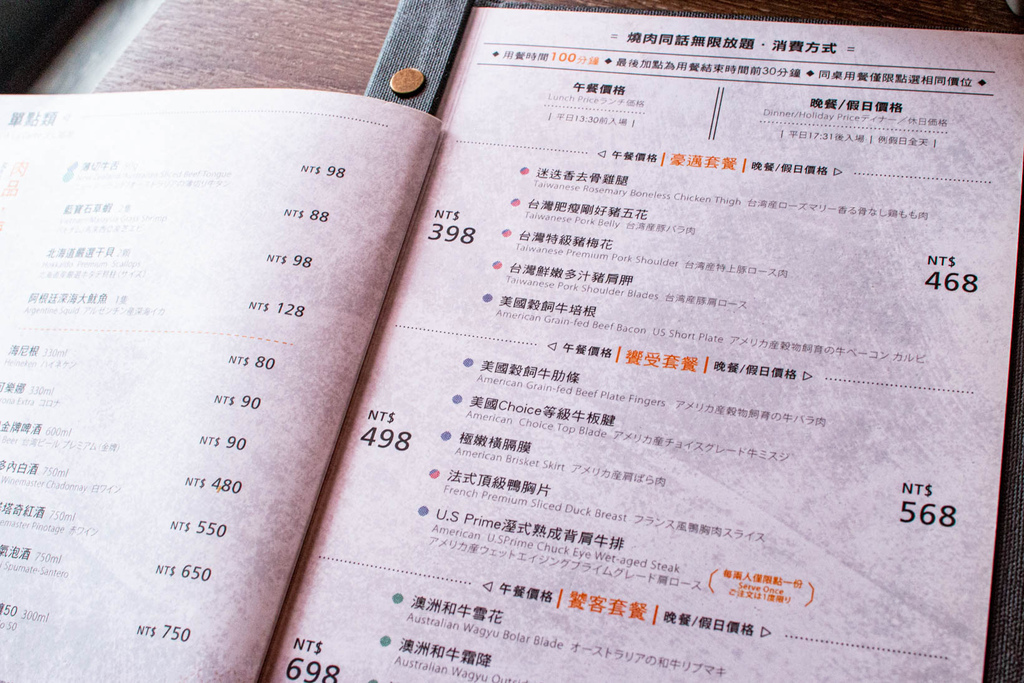 單點類
肉品
薄切牛舌
Sliced Beef Tongue
NT$ 98
藍寶石草蝦 2隻
NT$ 88
北海道嚴選干貝 2顆
Hokkaido Premium Scallops
NT$ 98
阿根廷深海大魷魚 1隻
Argentine Squid アルゼンチン産深海イカ
NT$ 128
海尼根 330ml
Heineken ハイネケン
NT$ 80
可樂娜 330ml
Corona Extra コロナ
NT$ 90
金牌啤酒 600ml
Beer 台湾ビール プレミアム(金牌)
NT$ 90
多內白酒 750ml
Winemaster Chadonnay 白ワイン
NT$ 480
塔奇紅酒 750ml
emaster Pinotage 赤ワイン
NT$ 550
氣泡酒 750ml
Spumate-Santero
NT$ 650
50 300ml
50
NT$ 750
= 燒肉同話無限放題・消費方式 =
◆ 用餐時間100分鐘 ◆ 最後加點為用餐結束時間前30分鐘 ◆ 同桌用餐僅限點選相同價位 ◆
午餐價格
Lunch Priceランチ価格
| 平日13:30前入場 |
晚餐/假日價格
Dinner/Holiday Priceディナー/休日価格
| 平日17:31後入場 | 例假日全天 |
◁ 午餐價格 | 豪邁套餐 | 晚餐/假日價格 ▷
NT$ 398
NT$ 468
迷迭香去骨雞腿
Taiwanese Rosemary Boneless Chicken Thigh 台湾産ローズマリー香る骨なし鶏もも肉
台灣肥瘦剛好豬五花
Taiwanese Pork Belly 台湾産豚バラ肉
台灣特級豬梅花
Taiwanese Premium Pork Shoulder 台湾産特上豚ロース肉
台灣鮮嫩多汁豬肩胛
Taiwanese Pork Shoulder Blades 台湾産豚肩ロース
美國穀飼牛培根
American Grain-fed Beef Bacon US Short Plate アメリカ産穀物飼育の牛ベーコン カルビ
◁ 午餐價格 | 饗受套餐 | 晚餐/假日價格 ▷
NT$ 498
NT$ 568
美國穀飼牛肋條
American Grain-fed Beef Plate Fingers アメリカ産穀物飼育の牛バラ肉
美國Choice等級牛板腱
American Choice Top Blade アメリカ産チョイスグレード牛ミスジ
極嫩橫膈膜
American Brisket Skirt アメリカ産肩ばら肉
法式頂級鴨胸片
French Premium Sliced Duck Breast フランス風鴨胸肉スライス
U.S Prime溼式熟成背肩牛排
American U.SPrime Chuck Eye Wet-aged Steak
アメリカ産ウェットエイジングプライムグレード肩ロース
(每兩人僅限點一份
Serve Once
ご注文は1度限り)
◁ 午餐價格 | 饕客套餐 | 晚餐/假日價格 ▷
NT$ 698
澳洲和牛雪花
Australian Wagyu Bolar Blade オーストラリアの和牛リブマキ
澳洲和牛霜降
Australian Wagyu Outside